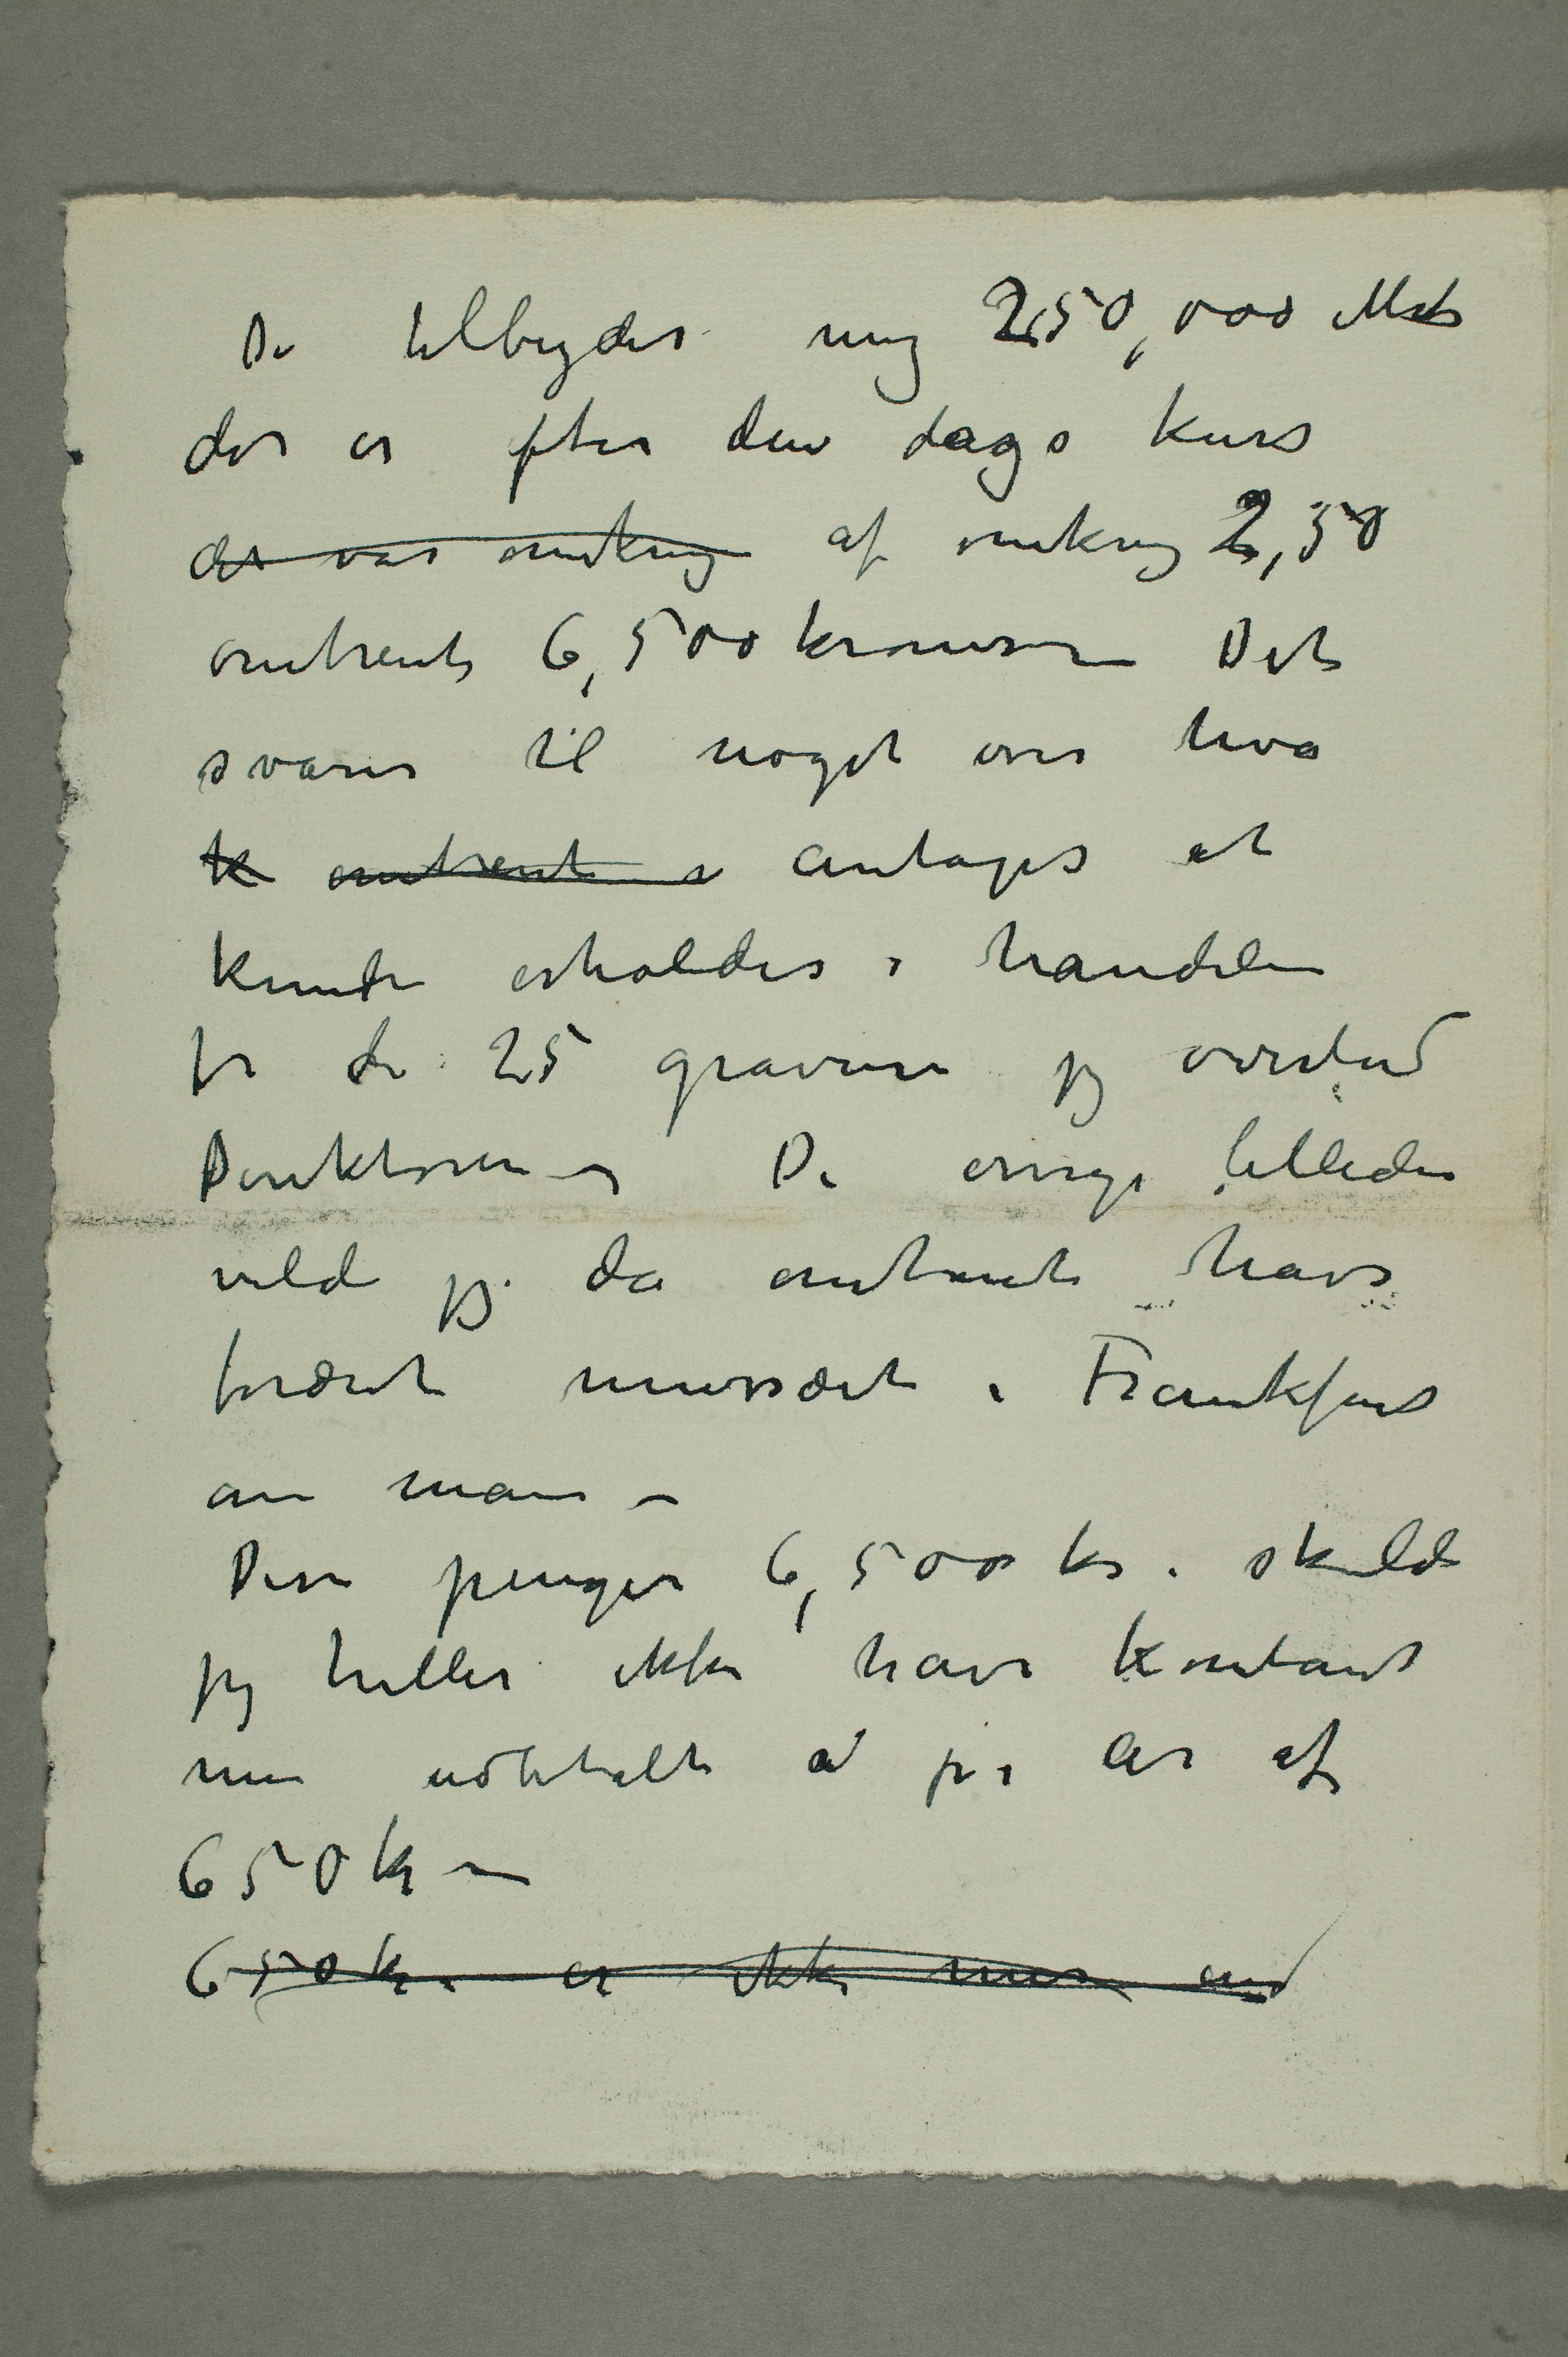 De tilbydes mig 250,000 Mk
der er efter den dags kurs
der var omkring af omkring 2,50
omtrent 6,500 kroner – Det
svarer til noget over hva
k omtrent i antages at
kunde erholdes i handelen
for de 25 gravurer jeg overlod
Direktøren – De øvrige billeder
vilde jeg da omtrent have
foræret museet i Frankfurt
am main –
Disse penger 6,500 kr. skulde
jeg heller ikke have kontant
men udbetalt a pr. år af
650 kr –
650 kr. er ikke mere end